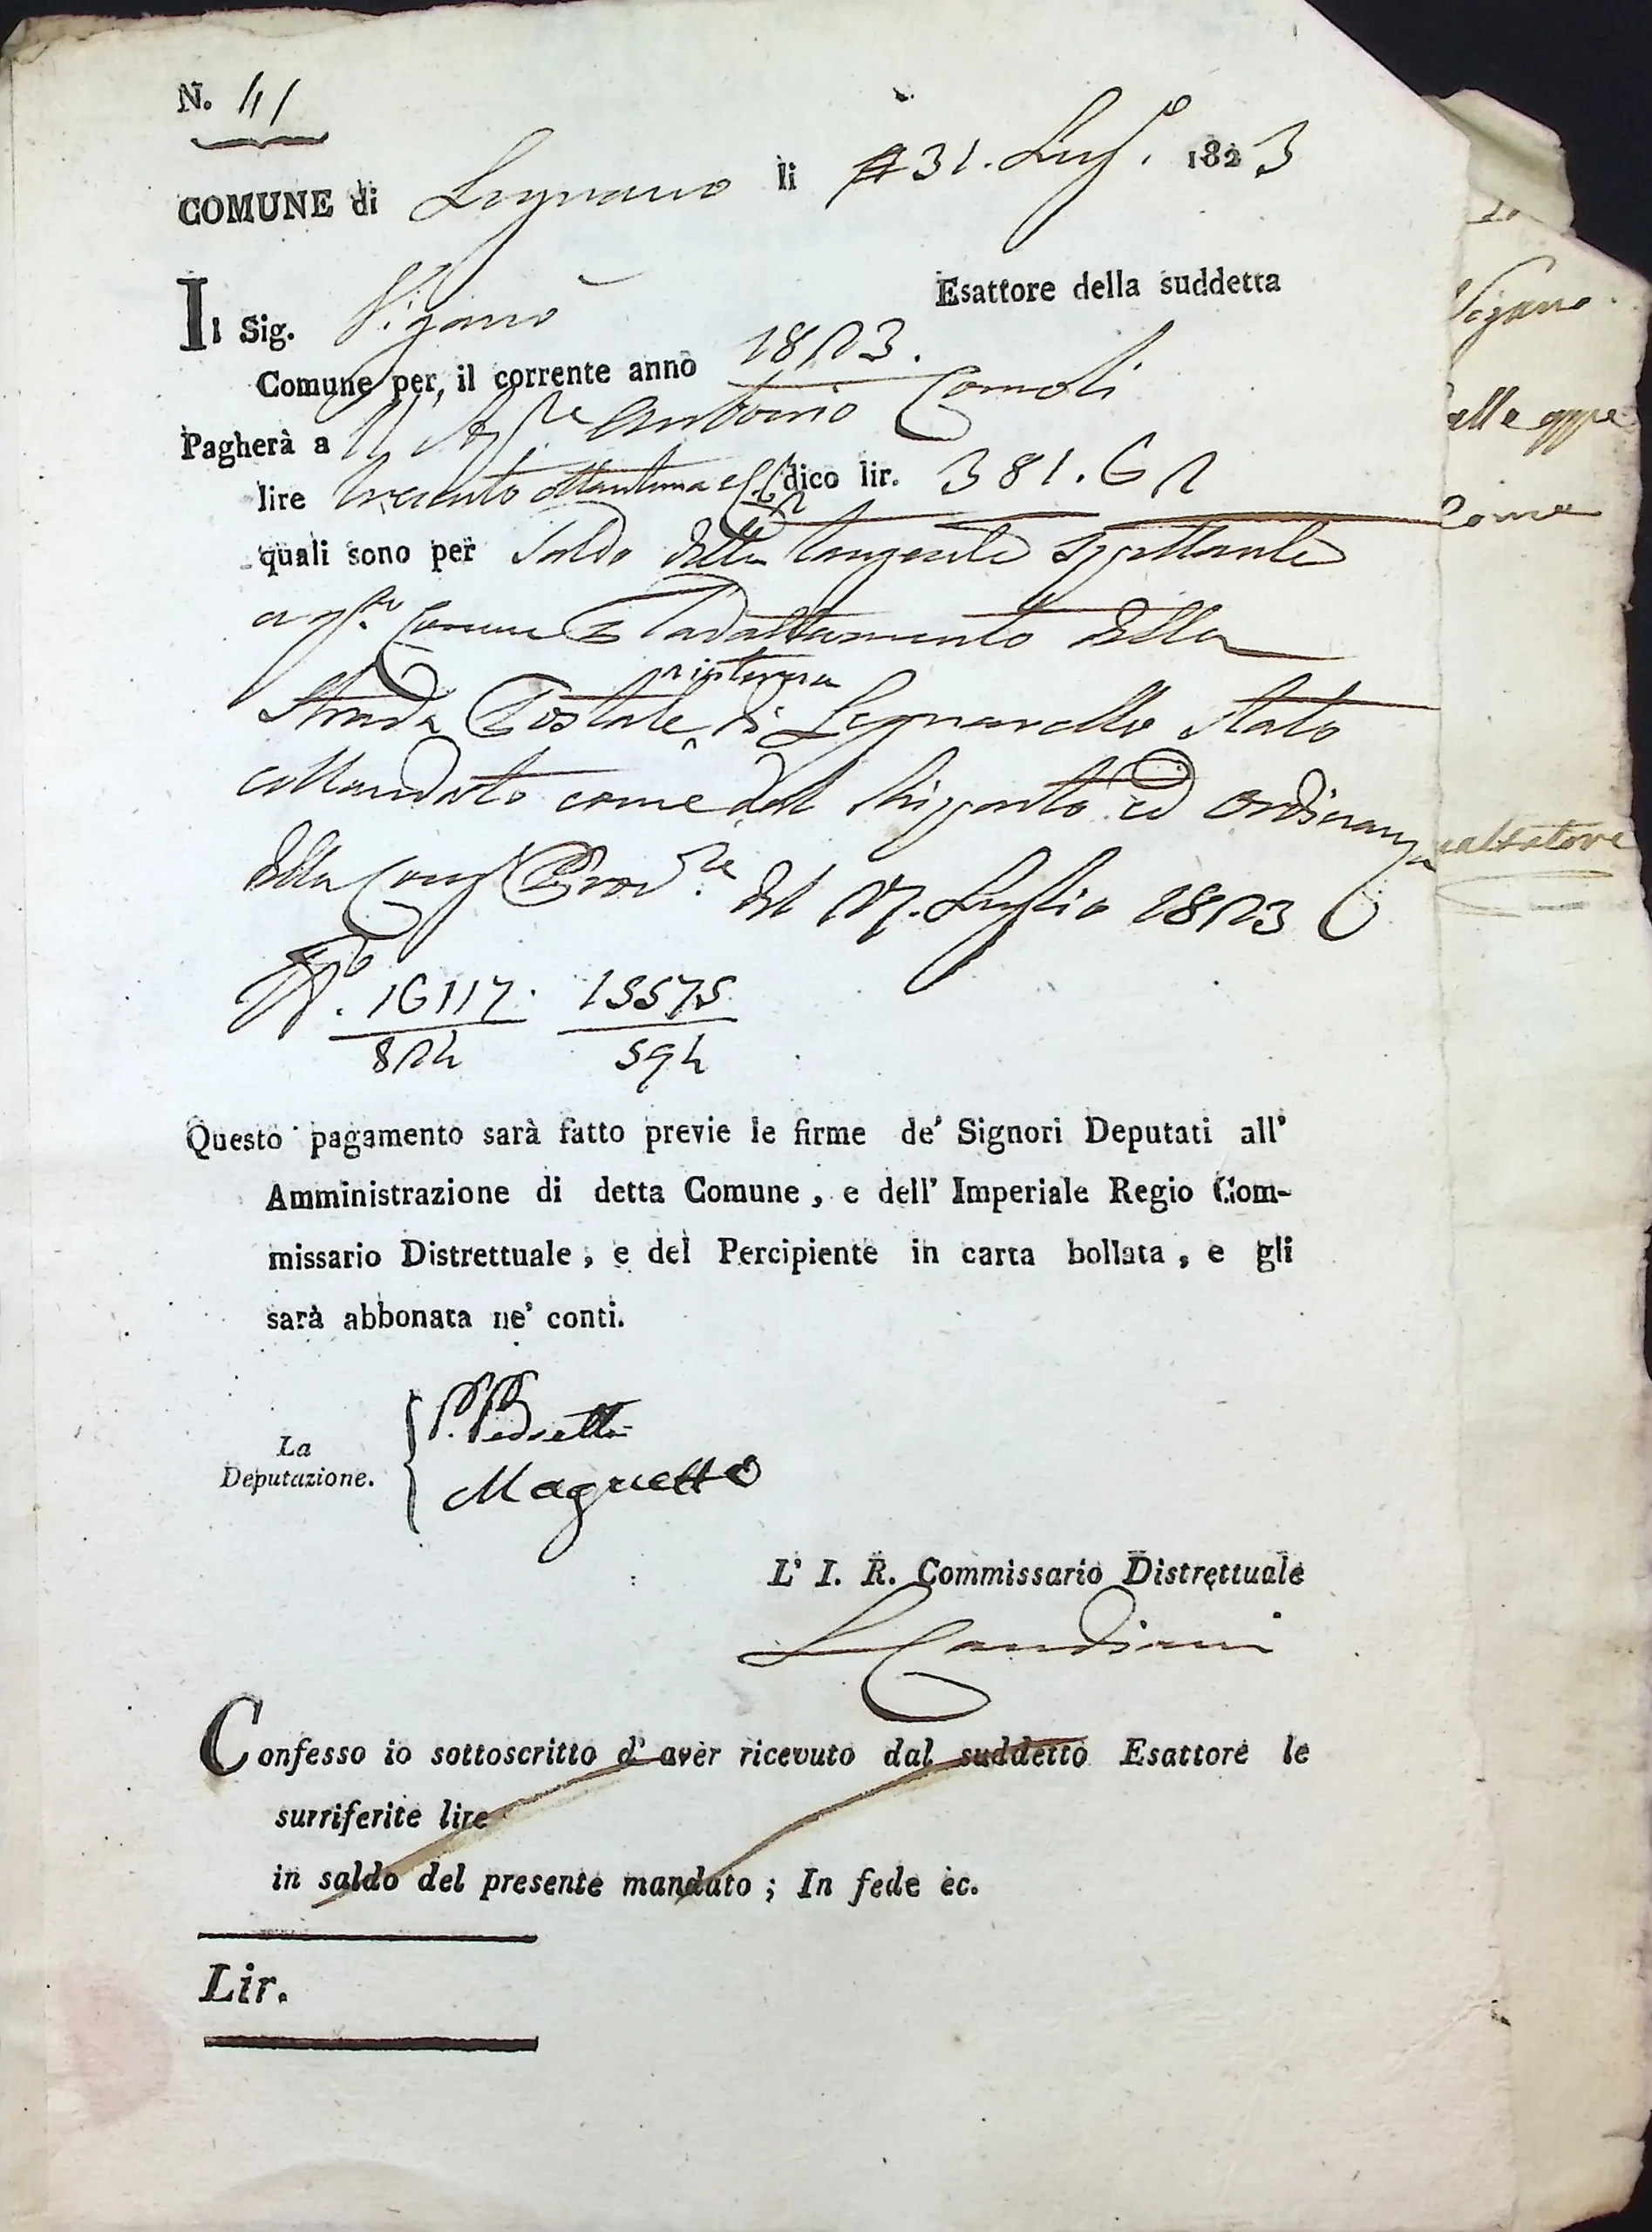 N. 41
COMUNE di Legnano li 31. Lugº. 1823
Il Sig. Viganò Esattore della suddetta
Comune per, il corrente anno 1823.
Pagherà a Antonio Comoli
lire trecento ottantuna e dico lir. 381.62
quali sono per Saldo della tangente spettante
Comune l'adattamento della
interna
Strada Postale di Legnarello stato
collaudato come dal ed ordinanza
della Cong. Prov.le del 17. Luglio 1823
Nº. 16117. 15575
824 594
Questo pagamento sarà fatto previe le firme de' Signori Deputati all'
Amministrazione di detta Comune, e dell' Imperiale Regio Com-
missario Distrettuale, e del Percipiente in carta bollata, e gli
sarà abbonata ne' conti.
La
Deputazione.
Magnetto
L' I. R. Commissario Distrettuale
Confesso io sottoscritto d' aver ricevuto dal suddetto Esattore le
surriferite lire
in saldo del presente mandato; In fede ec.
Lir.
Viganò
alle
Come